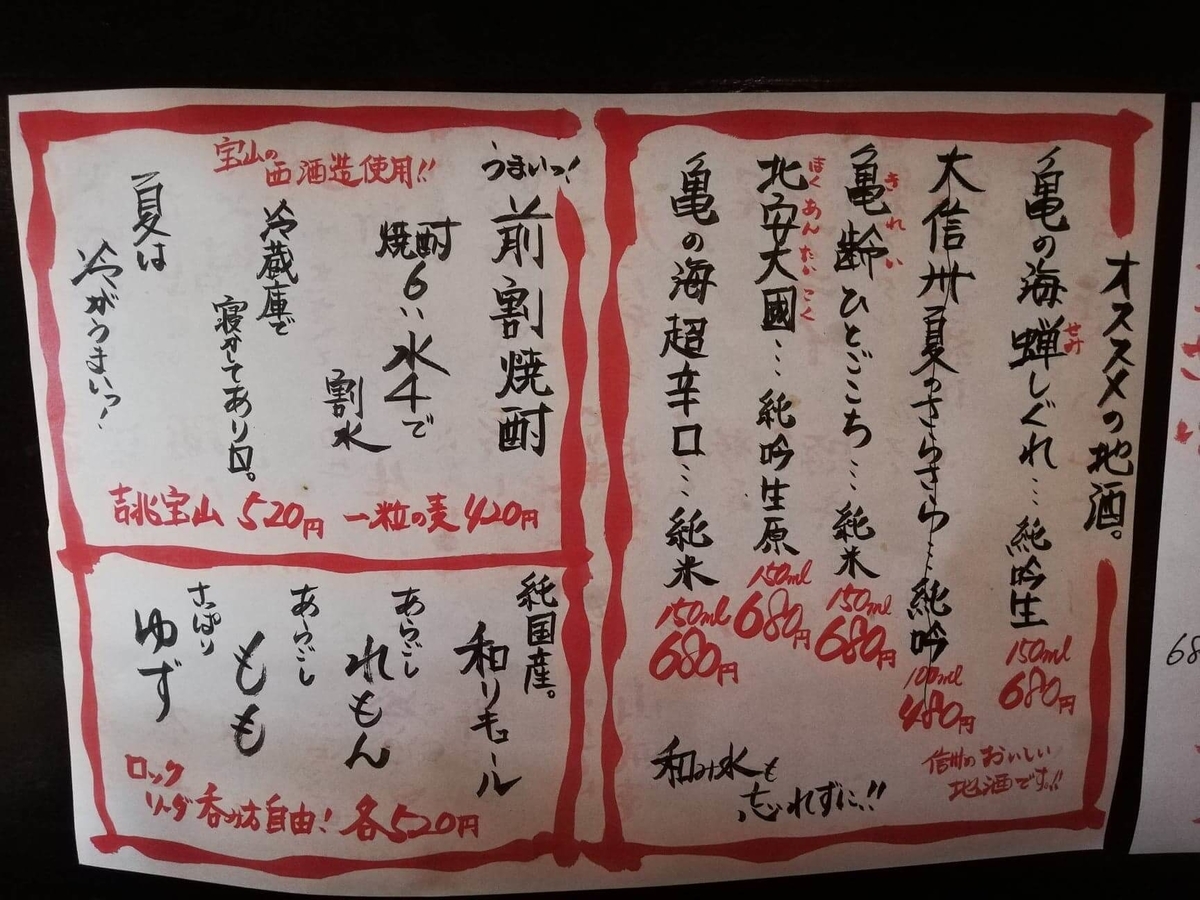 オススメの地酒。
亀の海 蝉しぐれ…純吟生
せみ
150ml
680円
大信州夏のさらさら…純吟
100ml
480円
亀齢ひとごこち…純米
きれい
150ml
680円
北安大國…純吟生原
ほくあんだいこく
150ml
680円
亀の海超辛口…純米
150ml
680円
信州のおいしい
地酒です!!
和み水も
忘れずに!!
うまいっ!
前割焼酎
焼酎6:水4で
割水
冷蔵庫で
寝かせてあり〼。
宝山の
西酒造使用!!
夏は
冷がうまいっ!
吉兆宝山 520円 一粒の麦 420円
純国産。
和リキュール
あらごし
れもん
あらごし
もも
さっぱり
ゆず
ロック
ソーダ 呑み方自由! 各520円
68